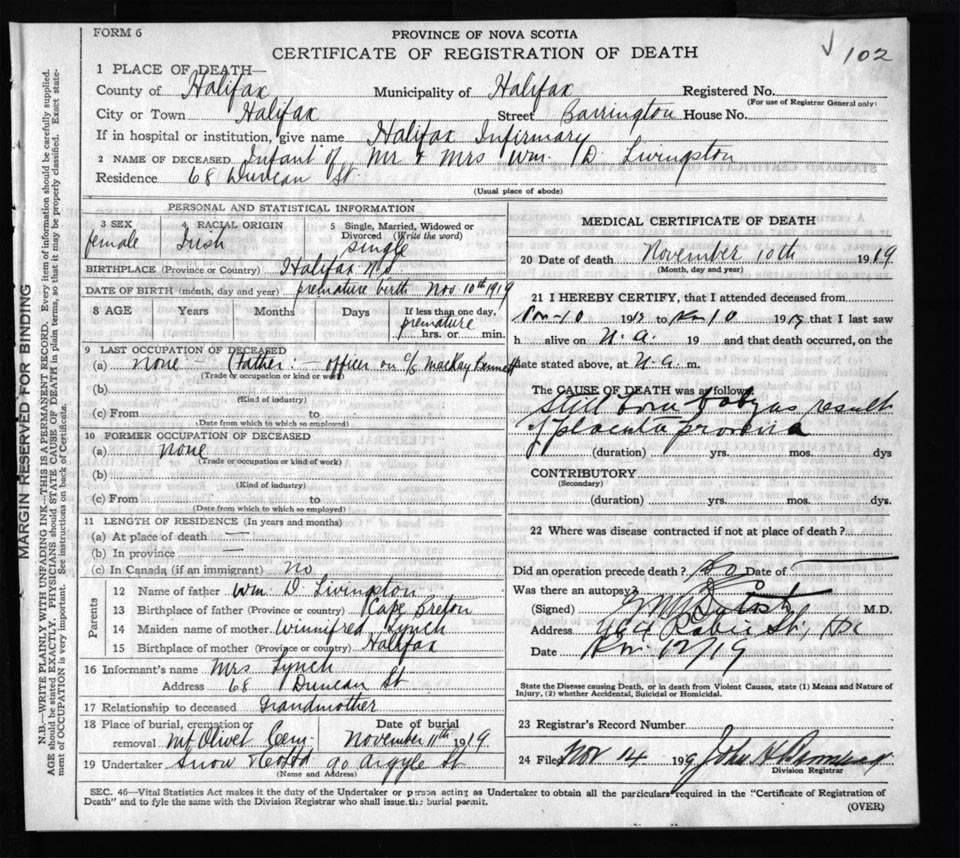 FORM 6
PROVINCE OF NOVA SCOTIA
CERTIFICATE OF REGISTRATION OF DEATH
102
1 PLACE OF DEATH—
County of Halifax Municipality of Halifax Registered No.
(For use of Registrar General only)
City or Town Halifax Street Barrington House No.
If in hospital or institution, give name Halifax Infirmary
2 NAME OF DECEASED Infant of Mr & Mrs Wm. D. Livingston
Residence 68 Duncan St.
(Usual place of abode)
PERSONAL AND STATISTICAL INFORMATION
3 SEX female
4 RACIAL ORIGIN Irish
5 Single, Married, Widowed or Divorced (Write the word) single
BIRTHPLACE (Province or Country) Halifax N.S.
DATE OF BIRTH (month, day and year) premature birth Nov. 10th 1919
8 AGE Years Months Days If less than one day, premature hrs. or min.
9 LAST OCCUPATION OF DECEASED
(a) none — (Father: — officer on c/s Mackay Bennett
(Trade or occupation or kind or work)
(b)
(Kind of industry)
(c) From to
(Date from which to which so employed)
10 FORMER OCCUPATION OF DECEASED
(a) none
(Trade or occupation or kind of work)
(b)
(Kind of industry)
(c) From to
(Date from which to which so employed)
11 LENGTH OF RESIDENCE (In years and months)
(a) At place of death —
(b) In province —
(c) In Canada (if an immigrant) no
Parents
12 Name of father Wm. D. Livingston
13 Birthplace of father (Province or country) Cape Breton
14 Maiden name of mother Winnifred Lynch
15 Birthplace of mother (Province or country) Halifax
16 Informant's name Mrs Lynch
Address 68 Duncan St
17 Relationship to deceased Grandmother
18 Place of burial, cremation or removal Mt Olivet Cem. Date of burial November 11th 1919
19 Undertaker Snow & Co Ltd 90 Argyle St
(Name and Address)
MEDICAL CERTIFICATE OF DEATH
20 Date of death November 10th 1919
(Month, day and year)
21 I HEREBY CERTIFY, that I attended deceased from
Nov-10 1919 to Nov 10 1919 that I last saw
h alive on N.a. 19 and that death occurred, on the
date stated above, at N.a. m.
The CAUSE OF DEATH was as follows:
Still born as result
of placenta praevia
(duration) yrs. mos. dys
CONTRIBUTORY
(Secondary)
(duration) yrs. mos. dys.
22 Where was disease contracted if not at place of death?
Did an operation precede death? no Date of —
Was there an autopsy?
(Signed) M.D.
Address 464 Robie St., Hx
Date Nov. 12/19
State the Disease causing Death, or in death from Violent Causes, state (1) Means and Nature of
Injury, (2) whether Accidental, Suicidal or Homicidal.
23 Registrar's Record Number
24 Filed Nov 14 1919 John H
Division Registrar
SEC. 46—Vital Statistics Act makes it the duty of the Undertaker or person acting as Undertaker to obtain all the particulars required in the "Certificate of Registration of
Death" and to fyle the same with the Division Registrar who shall issue the burial permit.
(OVER)
MARGIN RESERVED FOR BINDING
N.B.—WRITE PLAINLY WITH UNFADING INK—THIS IS A PERMANENT RECORD. Every item of information should be carefully supplied.
AGE should be stated EXACTLY. PHYSICIANS should STATE CAUSE OF DEATH in plain terms, so that it may be properly classified. Exact state-
ment of OCCUPATION is very important. See instructions on back of Certificate.